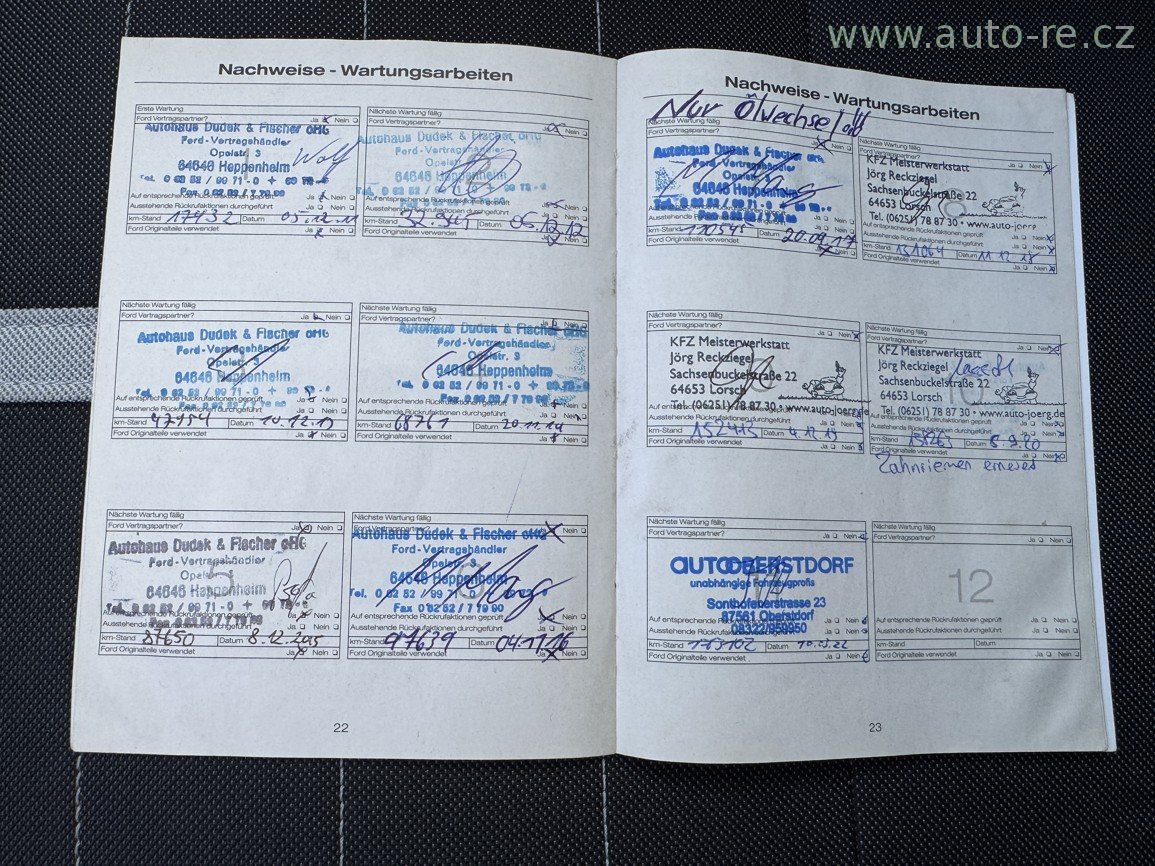 www.auto-re.cz
Nachweise - Wartungsarbeiten
Erste Wartung
Ford Vertragspartner? Ja Nein
Autohaus Dudek & Fischer oHG
Ford-Vertragshändler
Opelstr. 3
64646 Heppenheim
Auf entsprechende Rückrufaktionen geprüft Ja Nein
Ausstehende Rückrufaktionen durchgeführt Ja Nein
km-Stand 17432 Datum 05.12.11
Ford Originalteile verwendet Ja Nein
Nächste Wartung fällig
Ford Vertragspartner? Ja Nein
Autohaus Dudek & Fischer oHG
Ford-Vertragshändler
64646 Heppenheim
Tel. 0 62 52 / 99 71-0
Ausstehende Rückrufaktionen durchgeführt
km-Stand Datum 06.12.12
Ford Originalteile verwendet Ja Nein
Nächste Wartung fällig
Ford Vertragspartner? Ja Nein
Autohaus Dudek & Fischer oHG
Ford-Vertragshändler
Opelstr. 3
64646 Heppenheim
Tel. 0 62 52 / 99 71-0
Auf entsprechende Rückrufaktionen geprüft Ja Nein
Ausstehende Rückrufaktionen durchgeführt Ja Nein
km-Stand 47954 Datum 10.12.13
Ford Originalteile verwendet Ja Nein
Nächste Wartung fällig
Ford Vertragspartner? Ja Nein
Autohaus Dudek & Fischer oHG
Ford-Vertragshändler
Opelstr. 3
64646 Heppenheim
Tel. 0 62 52 / 99 71-0
Ausstehende Rückrufaktionen durchgeführt Ja Nein
km-Stand 68761 Datum 20.11.14
Ford Originalteile verwendet Ja Nein
Nächste Wartung fällig
Ford Vertragspartner? Ja Nein
Autohaus Dudek & Fischer oHG
Ford-Vertragshändler
64646 Heppenheim
Tel. 0 62 52 / 99 71-0
Ausstehende Rückrufaktionen durchgeführt Ja Nein
km-Stand 87650 Datum 8.12.2015
Ford Originalteile verwendet Ja Nein
Nächste Wartung fällig
Ford Vertragspartner? Ja Nein
Autohaus Dudek & Fischer oHG
Ford-Vertragshändler
Opelstr. 3
64646 Heppenheim
Fax 0 62 52 / 7 19 90
Auf entsprechende Rückrufaktionen geprüft Ja Nein
Ausstehende Rückrufaktionen durchgeführt Ja Nein
km-Stand 97639 Datum 04.11.16
Ford Originalteile verwendet Ja Nein
22
Nachweise - Wartungsarbeiten
Nur Ölwechsel
Nächste Wartung fällig
Ford Vertragspartner? Ja Nein
Autohaus Dudek & Fischer oHG
Ford-Vertragshändler
Opelstr. 3
64646 Heppenheim
km-Stand Datum 20.09.17
Ford Originalteile verwendet Ja Nein
KFZ Meisterwerkstatt
Jörg Reckziegel
Sachsenbuckelstraße 22
64653 Lorsch
Tel. (06251) 78 87 30 • www.auto-joerg
Auf entsprechende Rückrufaktionen geprüft Ja Nein
Ausstehende Rückrufaktionen durchgeführt Ja Nein
km-Stand 131064 Datum 11.12.18
Ford Originalteile verwendet Ja Nein
Nächste Wartung fällig
Ford Vertragspartner? Ja Nein
KFZ Meisterwerkstatt
Jörg Reckziegel
Sachsenbuckelstraße 22
64653 Lorsch
Tel. (06251) 78 87 30 • www.auto-joerg.de
Ausstehende Rückrufaktionen durchgeführt
km-Stand 152415 Datum 4.12.19
Ford Originalteile verwendet Ja Nein
Nächste Wartung fällig
Ford Vertragspartner? Ja Nein
KFZ Meisterwerkstatt
Jörg Reckziegel
Sachsenbuckelstraße 22
64653 Lorsch
Tel. (06251) 78 87 30 • www.auto-joerg.de
Ausstehende Rückrufaktionen durchgeführt
km-Stand 158263 Datum 8.9.20
Ford Originalteile verwendet Ja Nein
Zahnriemen erneuert
Nächste Wartung fällig
Ford Vertragspartner? Ja Nein
AUTO OBERSTDORF
unabhängige Fahrzeugprofis
Sonthofenerstrasse 23
87561 Oberstdorf
08322/959950
Auf entsprechende Ja Nein
Ausstehende Rückrufaktionen durchgeführt Ja Nein
km-Stand Datum 10.03.22
Ford Originalteile verwendet Ja Nein
Nächste Wartung fällig
Ford Vertragspartner? Ja Nein
12
Auf entsprechende Rückrufaktionen geprüft Ja Nein
Ausstehende Rückrufaktionen durchgeführt Ja Nein
km-Stand Datum
Ford Originalteile verwendet Ja Nein
23